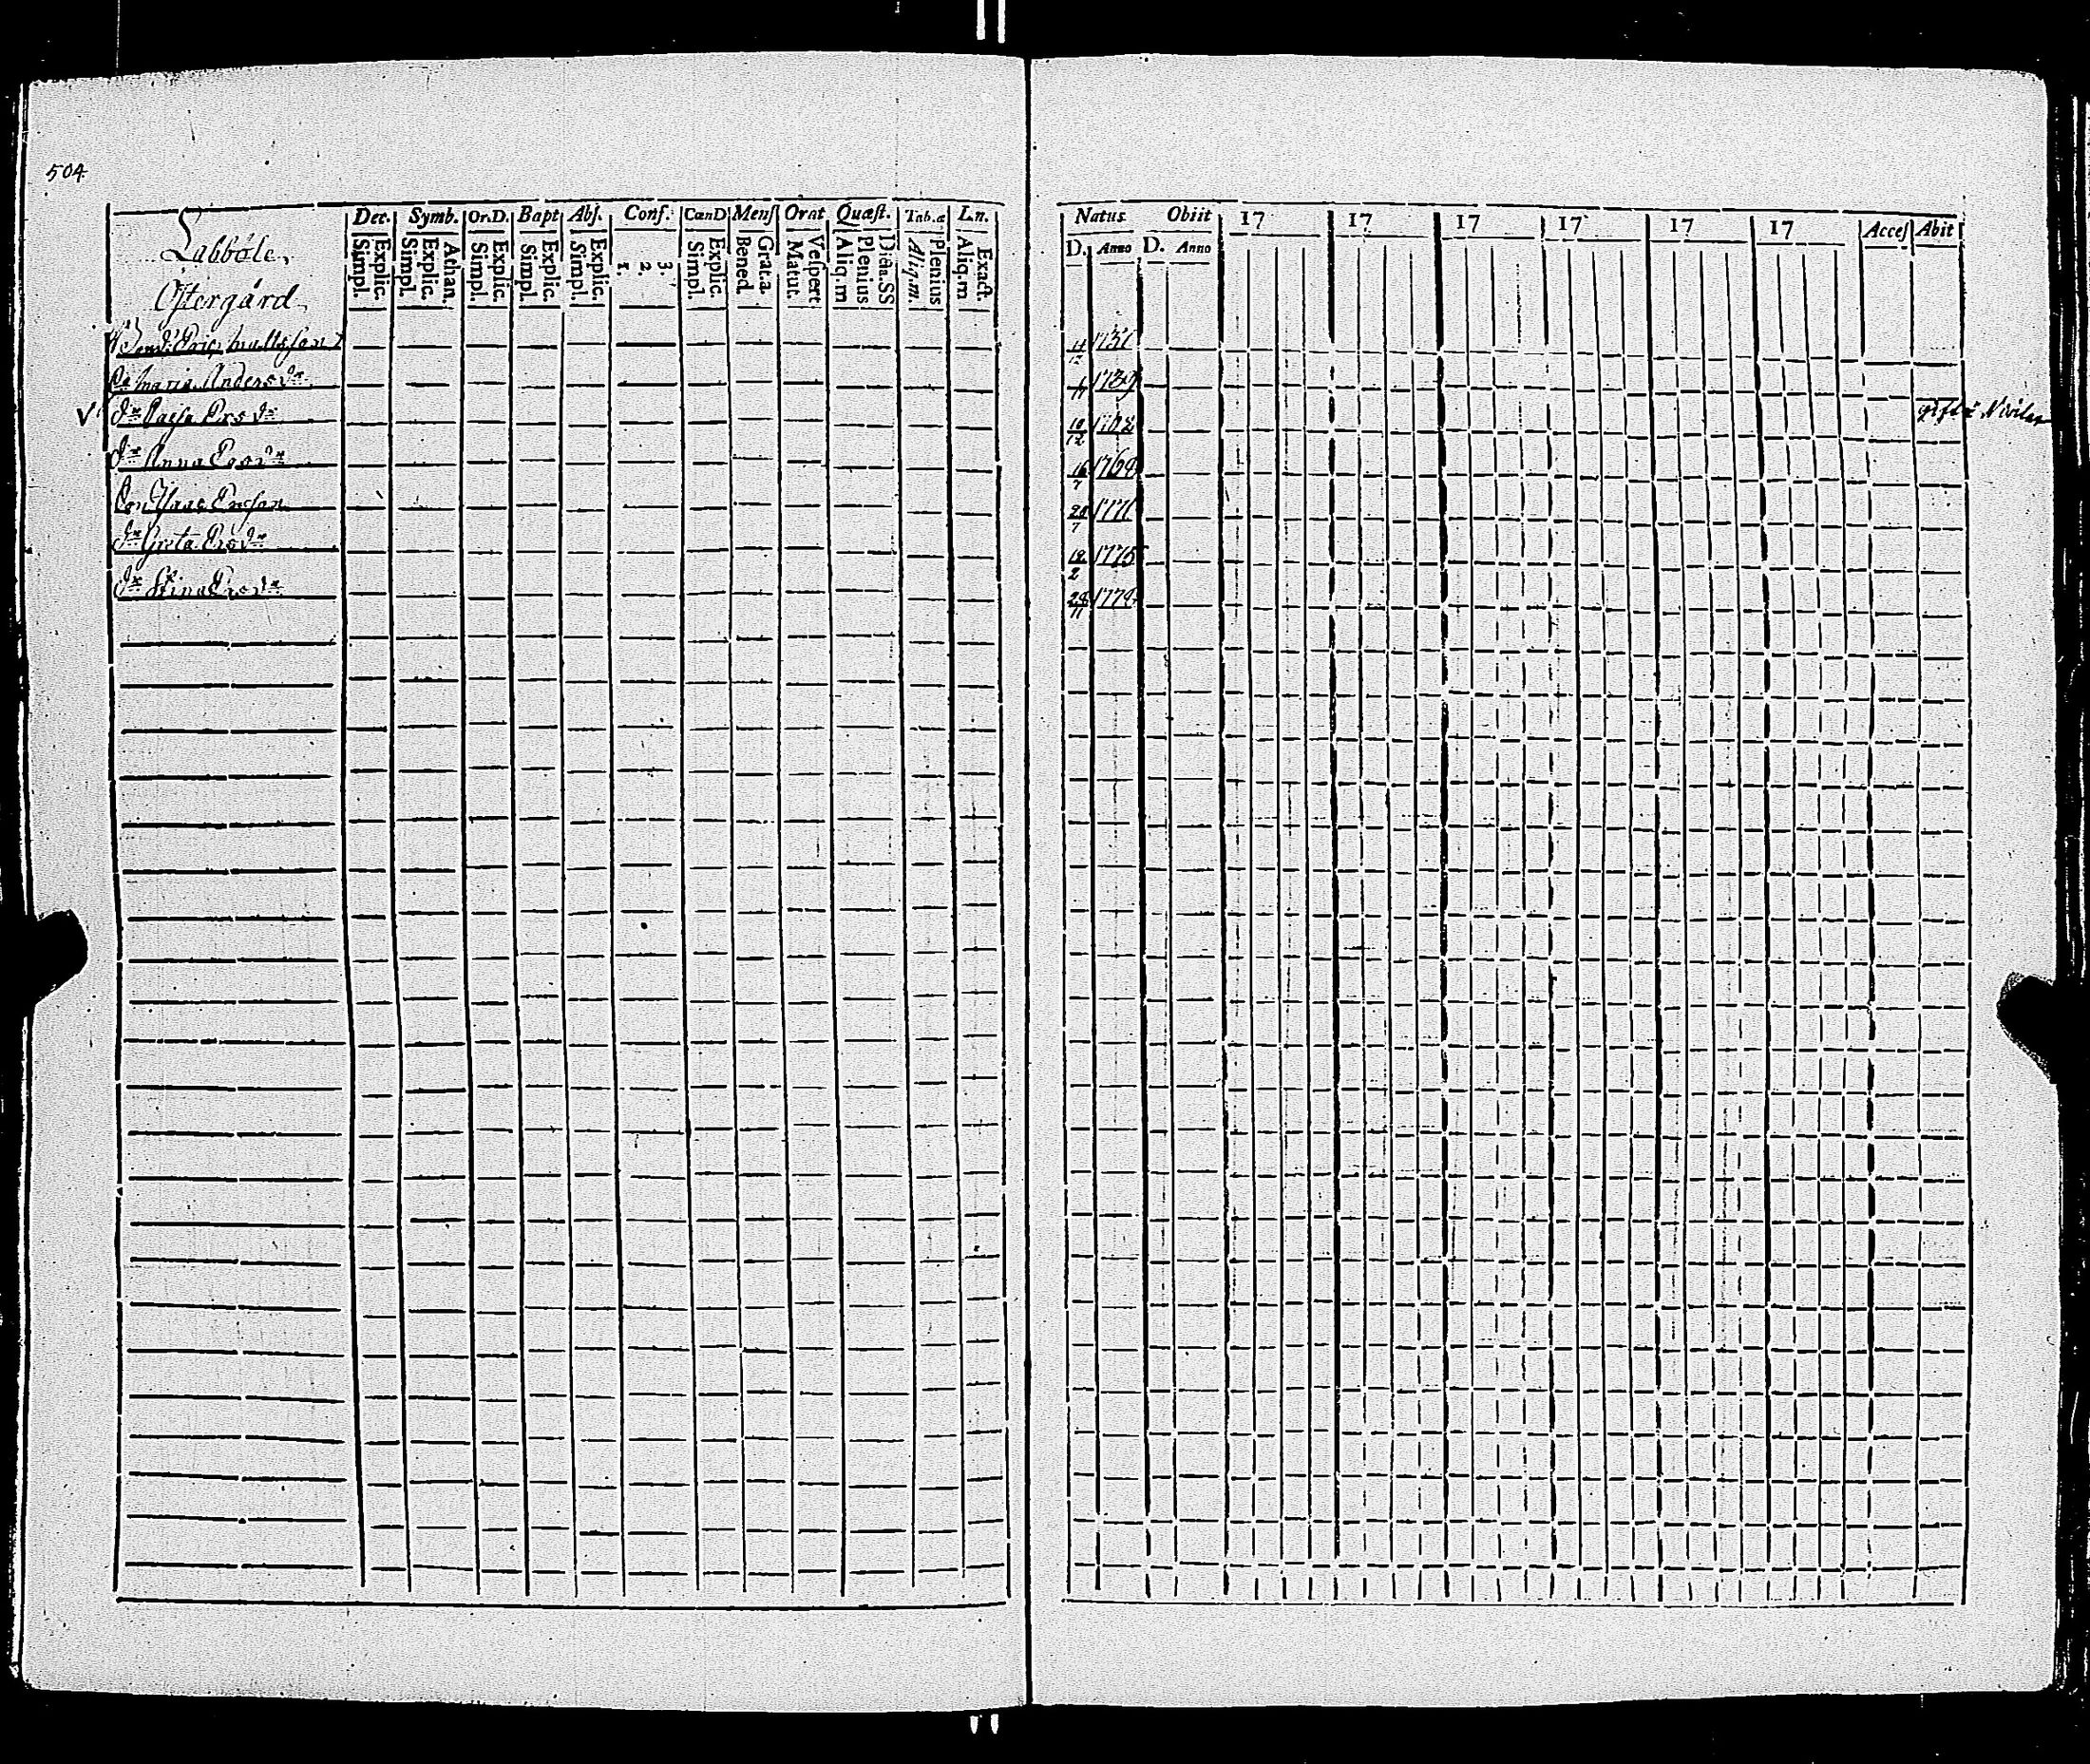 504
Labböle,
Östergård
Dec. Symb. Or.D. Bapt Abſ. Conf. CœnD Menſ Orat Quæſt. Tab.æ Ln.
Simpl. Explic. Simpl. Explic. Athan. Simpl. Explic. Simpl. Explic. Simpl. Explic. 1. 2. 3. Simpl. Explic. Bened. Grat.a. Matut. Veſpert Aliq.m Plenius Aliq.m. Plenius Aliq.m Exact.
Natus Obiit 17 17 17 17 17 17 Acceſ Abit
D. Anno D. Anno
Eric 11/12 1731
Maria Anders dr
V dr Caisa Ers dr 10/12 gift i
dr Anna Ers dr 16/7 1768
Son Isaac Ericson 20/7 1771
dr Greta Ers dr 18/2 1775
dr Stina Ers dr 28/11 1778